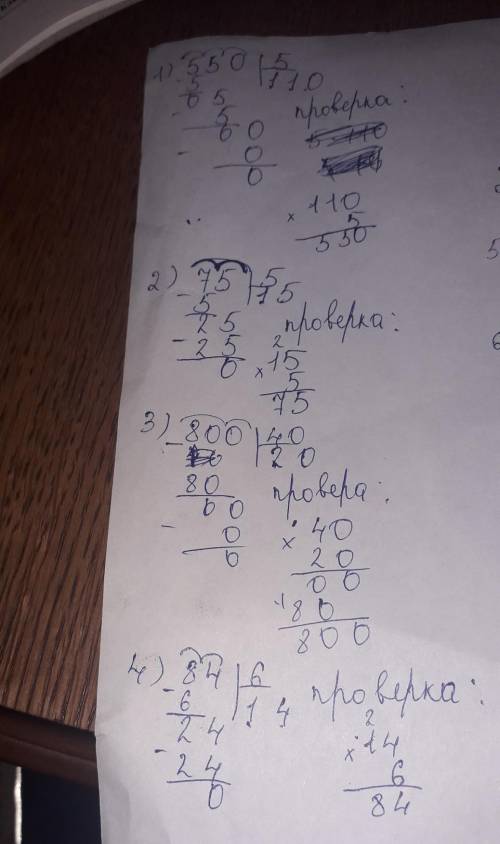 1) 550 | 5
- 5 | 110
05
- 5 проверка:
00
- 0
0
× 110
5
550
2) 75 | 5
- 5 | 15
25 проверка:
- 25
0
2
× 15
5
75
3) - 800 | 40
80 | 20
00 провера:
- 0
0
× 40
20
00
+ 80
800
4) 84 | 6
- 6 | 14 проверка:
24
- 24
0
2
× 14
6
84